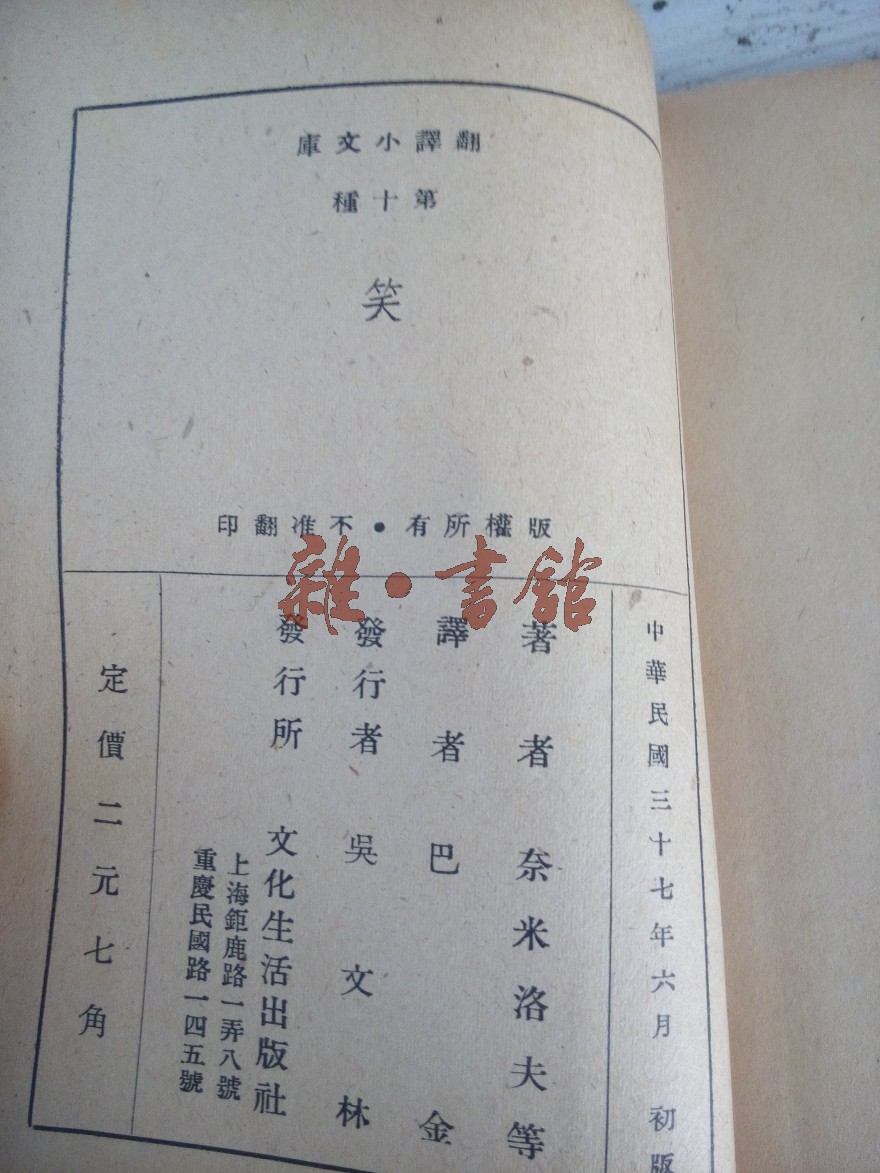 翻譯小文庫
第十種
笑
版權所有•不准翻印
雜•書館
中華民國三十七年六月 初版
著者 奈米洛夫等
譯者 巴金
發行者 吳文林
發行所 文化生活出版社
上海鉅鹿路一弄八號
重慶民國路一四五號
定價二元七角